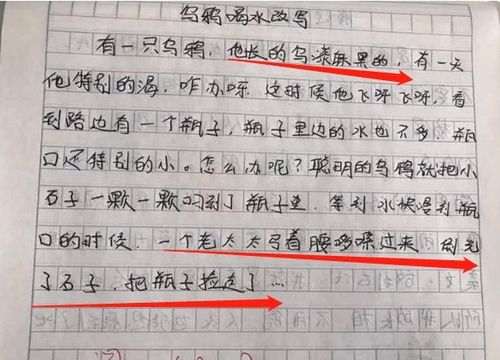 乌鸦喝水改写
有一只乌鸦，他长的乌漆麻黑的，有一天
他特别的渴，咋办呀，这时候他飞呀飞呀，看
到路边有一个瓶子，瓶子里边的水也不多，瓶
口还特别的小。怎么办呢？聪明的乌鸦就把小
石子一颗一颗叼到了瓶子里，等到水快漫到瓶
口的时候，一个老太太弓着腰哆嗦过来，倒光
了石子，把瓶子捡走了…